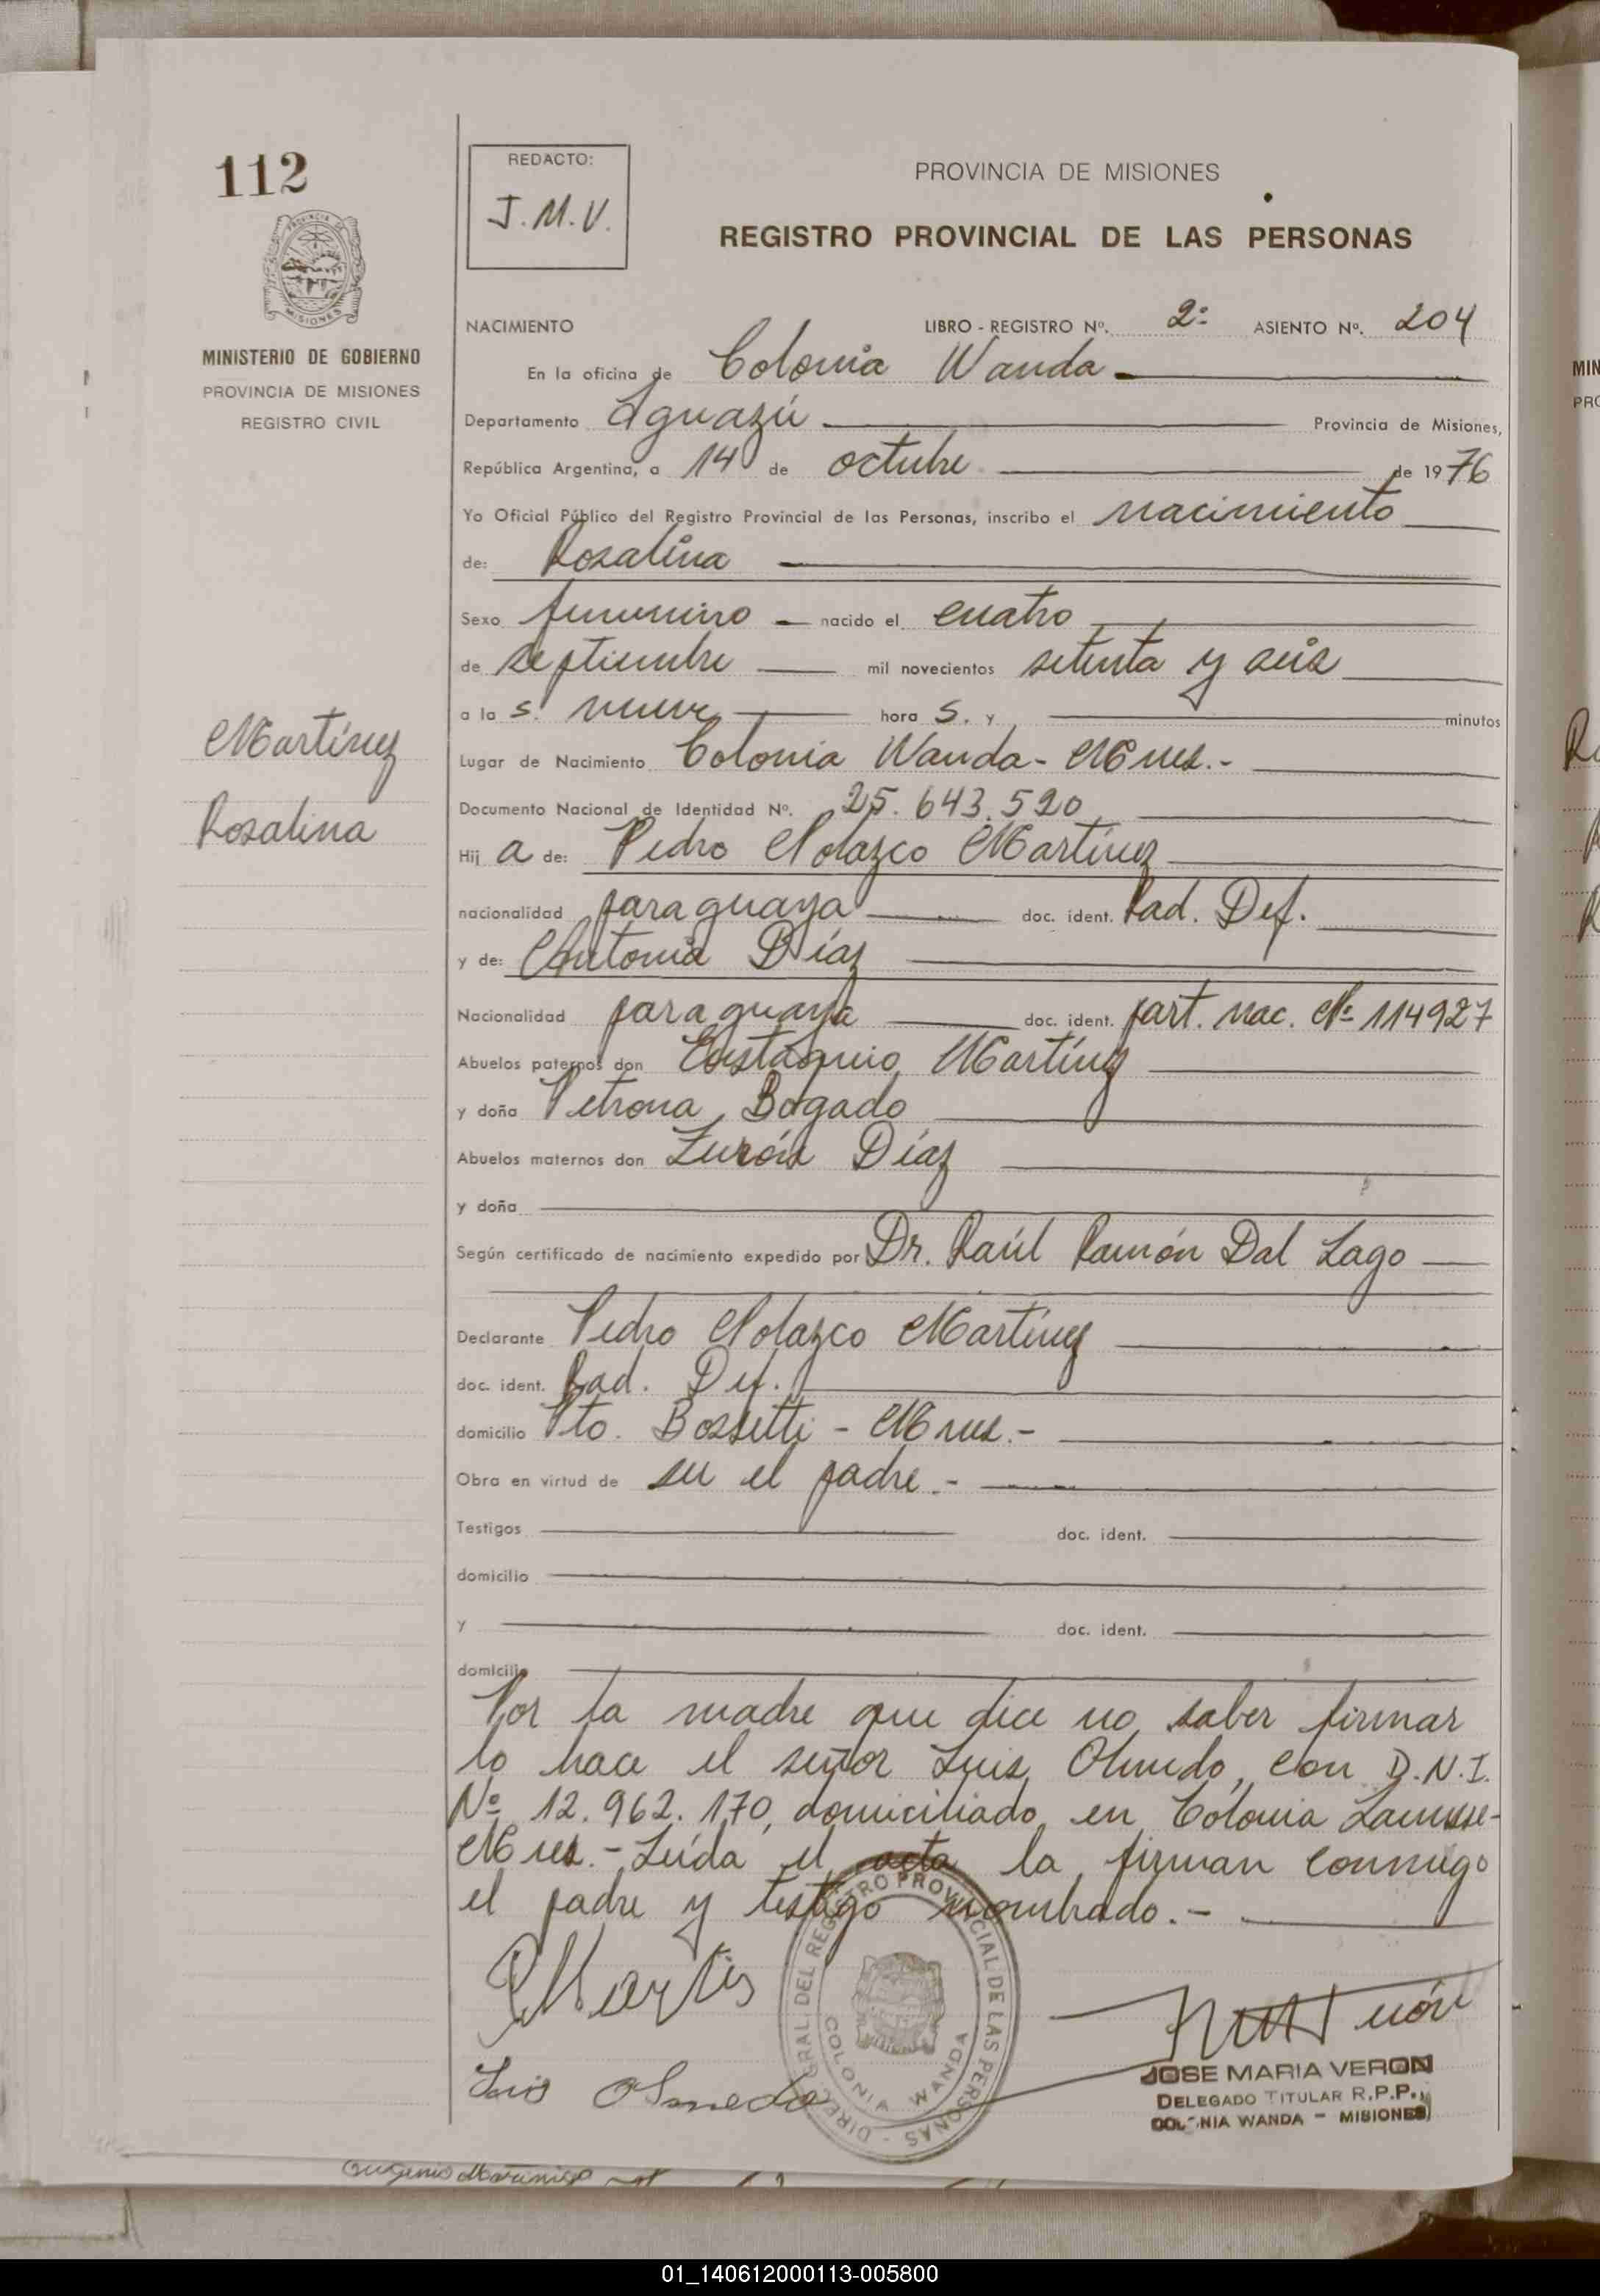 112
REDACTO:
J.M.V.
PROVINCIA DE MISIONES
REGISTRO PROVINCIAL DE LAS PERSONAS
MINISTERIO DE GOBIERNO
PROVINCIA DE MISIONES
REGISTRO CIVIL
NACIMIENTO LIBRO - REGISTRO Nº. 2º ASIENTO Nº. 204
En la oficina de Colonia Wanda
Departamento Iguazú Provincia de Misiones,
República Argentina, a 14 de octubre de 1976
Yo Oficial Público del Registro Provincial de las Personas, inscribo el nacimiento
de: Rosalina
Sexo femenino nacido el cuatro
de septiembre mil novecientos setenta y seis
a la s. nueve hora s. y minutos
Martínez
Lugar de Nacimiento Colonia Wanda - Mnes.-
Documento Nacional de Identidad Nº. 25.643.520
Rosalina
Hij a de: Pedro Nolazco Martínez
nacionalidad paraguaya doc. ident. Rad. Def.
y de: Antonia Díaz
Nacionalidad paraguaya doc. ident. part. nac. Nº 114927
Abuelos paternos don Eustaquio Martínez
y doña Petrona Bogado
Abuelos maternos don Díaz
y doña
Según certificado de nacimiento expedido por Dr. Raúl Ramón Dal Lago
Declarante Pedro Nolazco Martínez
doc. ident. Rad. Def.
domicilio Pto. Bossetti - Mnes.-
Obra en virtud de ser el padre.-
Testigos doc. ident.
domicilio
y doc. ident.
domicilio
Por la madre que dice no saber firmar
lo hace el señor Luis Olmedo, con D.N.I.
Nº 12.962.170, domiciliado en Colonia Lanusse-
Mnes.- Leída el acta la firman conmigo
el padre y testigo nombrado.-
Luis Olmedo
DIRECC. GRAL. DEL REGISTRO PROVINCIAL DE LAS PERSONAS -
COLONIA WANDA
JOSE MARIA VERON
DELEGADO TITULAR R.P.P.
COLONIA WANDA - MISIONES
01_140612000113-005800